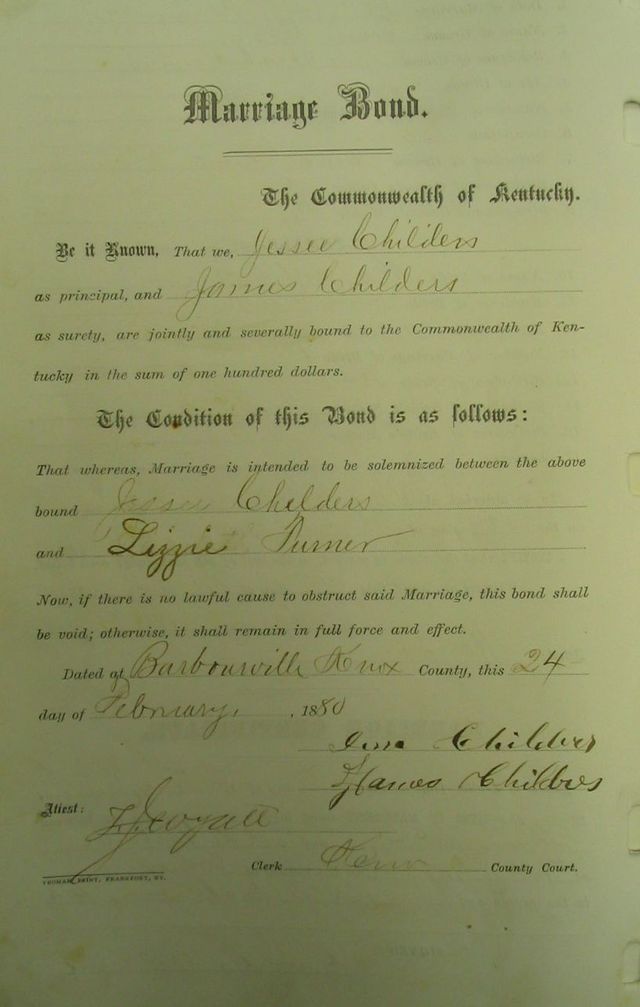 Marriage Bond.
The Commonwealth of Kentucky.
Be it Known, That we, Jessee Childers
as principal, and James Childers
as surety, are jointly and severally bound to the Commonwealth of Ken-
tucky in the sum of one hundred dollars.
The Condition of this Bond is as follows:
That whereas, Marriage is intended to be solemnized between the above
bound Jessee Childers
and Lizzie Turner
Now, if there is no lawful cause to obstruct said Marriage, this bond shall
be void; otherwise, it shall remain in full force and effect.
Dated at Barbourville Knox County, this 24
day of February, 1880
Childers
James Childres
Attest:
Clerk Knox County Court.
YEOMAN PRINT, FRANKFORT, KY.